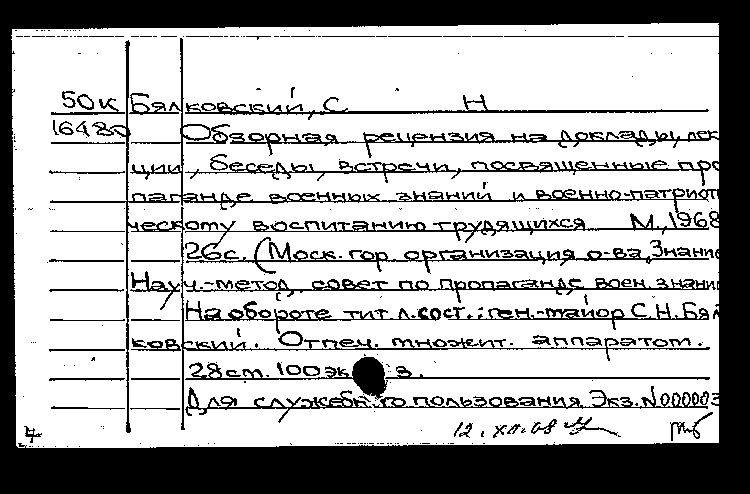 50к Бялковский, С Н
16480 Обзорная рецензия на доклады, лек
ции, беседы, встречи, посвященные про
паганде военных знаний и военно-патриот
ческому воспитанию трудящихся М., 1968
26с. (Моск. гор. организация о-ва „Знание
Науч.-метод. совет по пропаганде воен. знани
На обороте тит. л. сост.: ген.-майор С.Н. Бял
ковский. Отпеч. множит. аппаратом.
28 см. 100 эк з.
Для служебн го пользования Экз. N000003
12. XII. 68